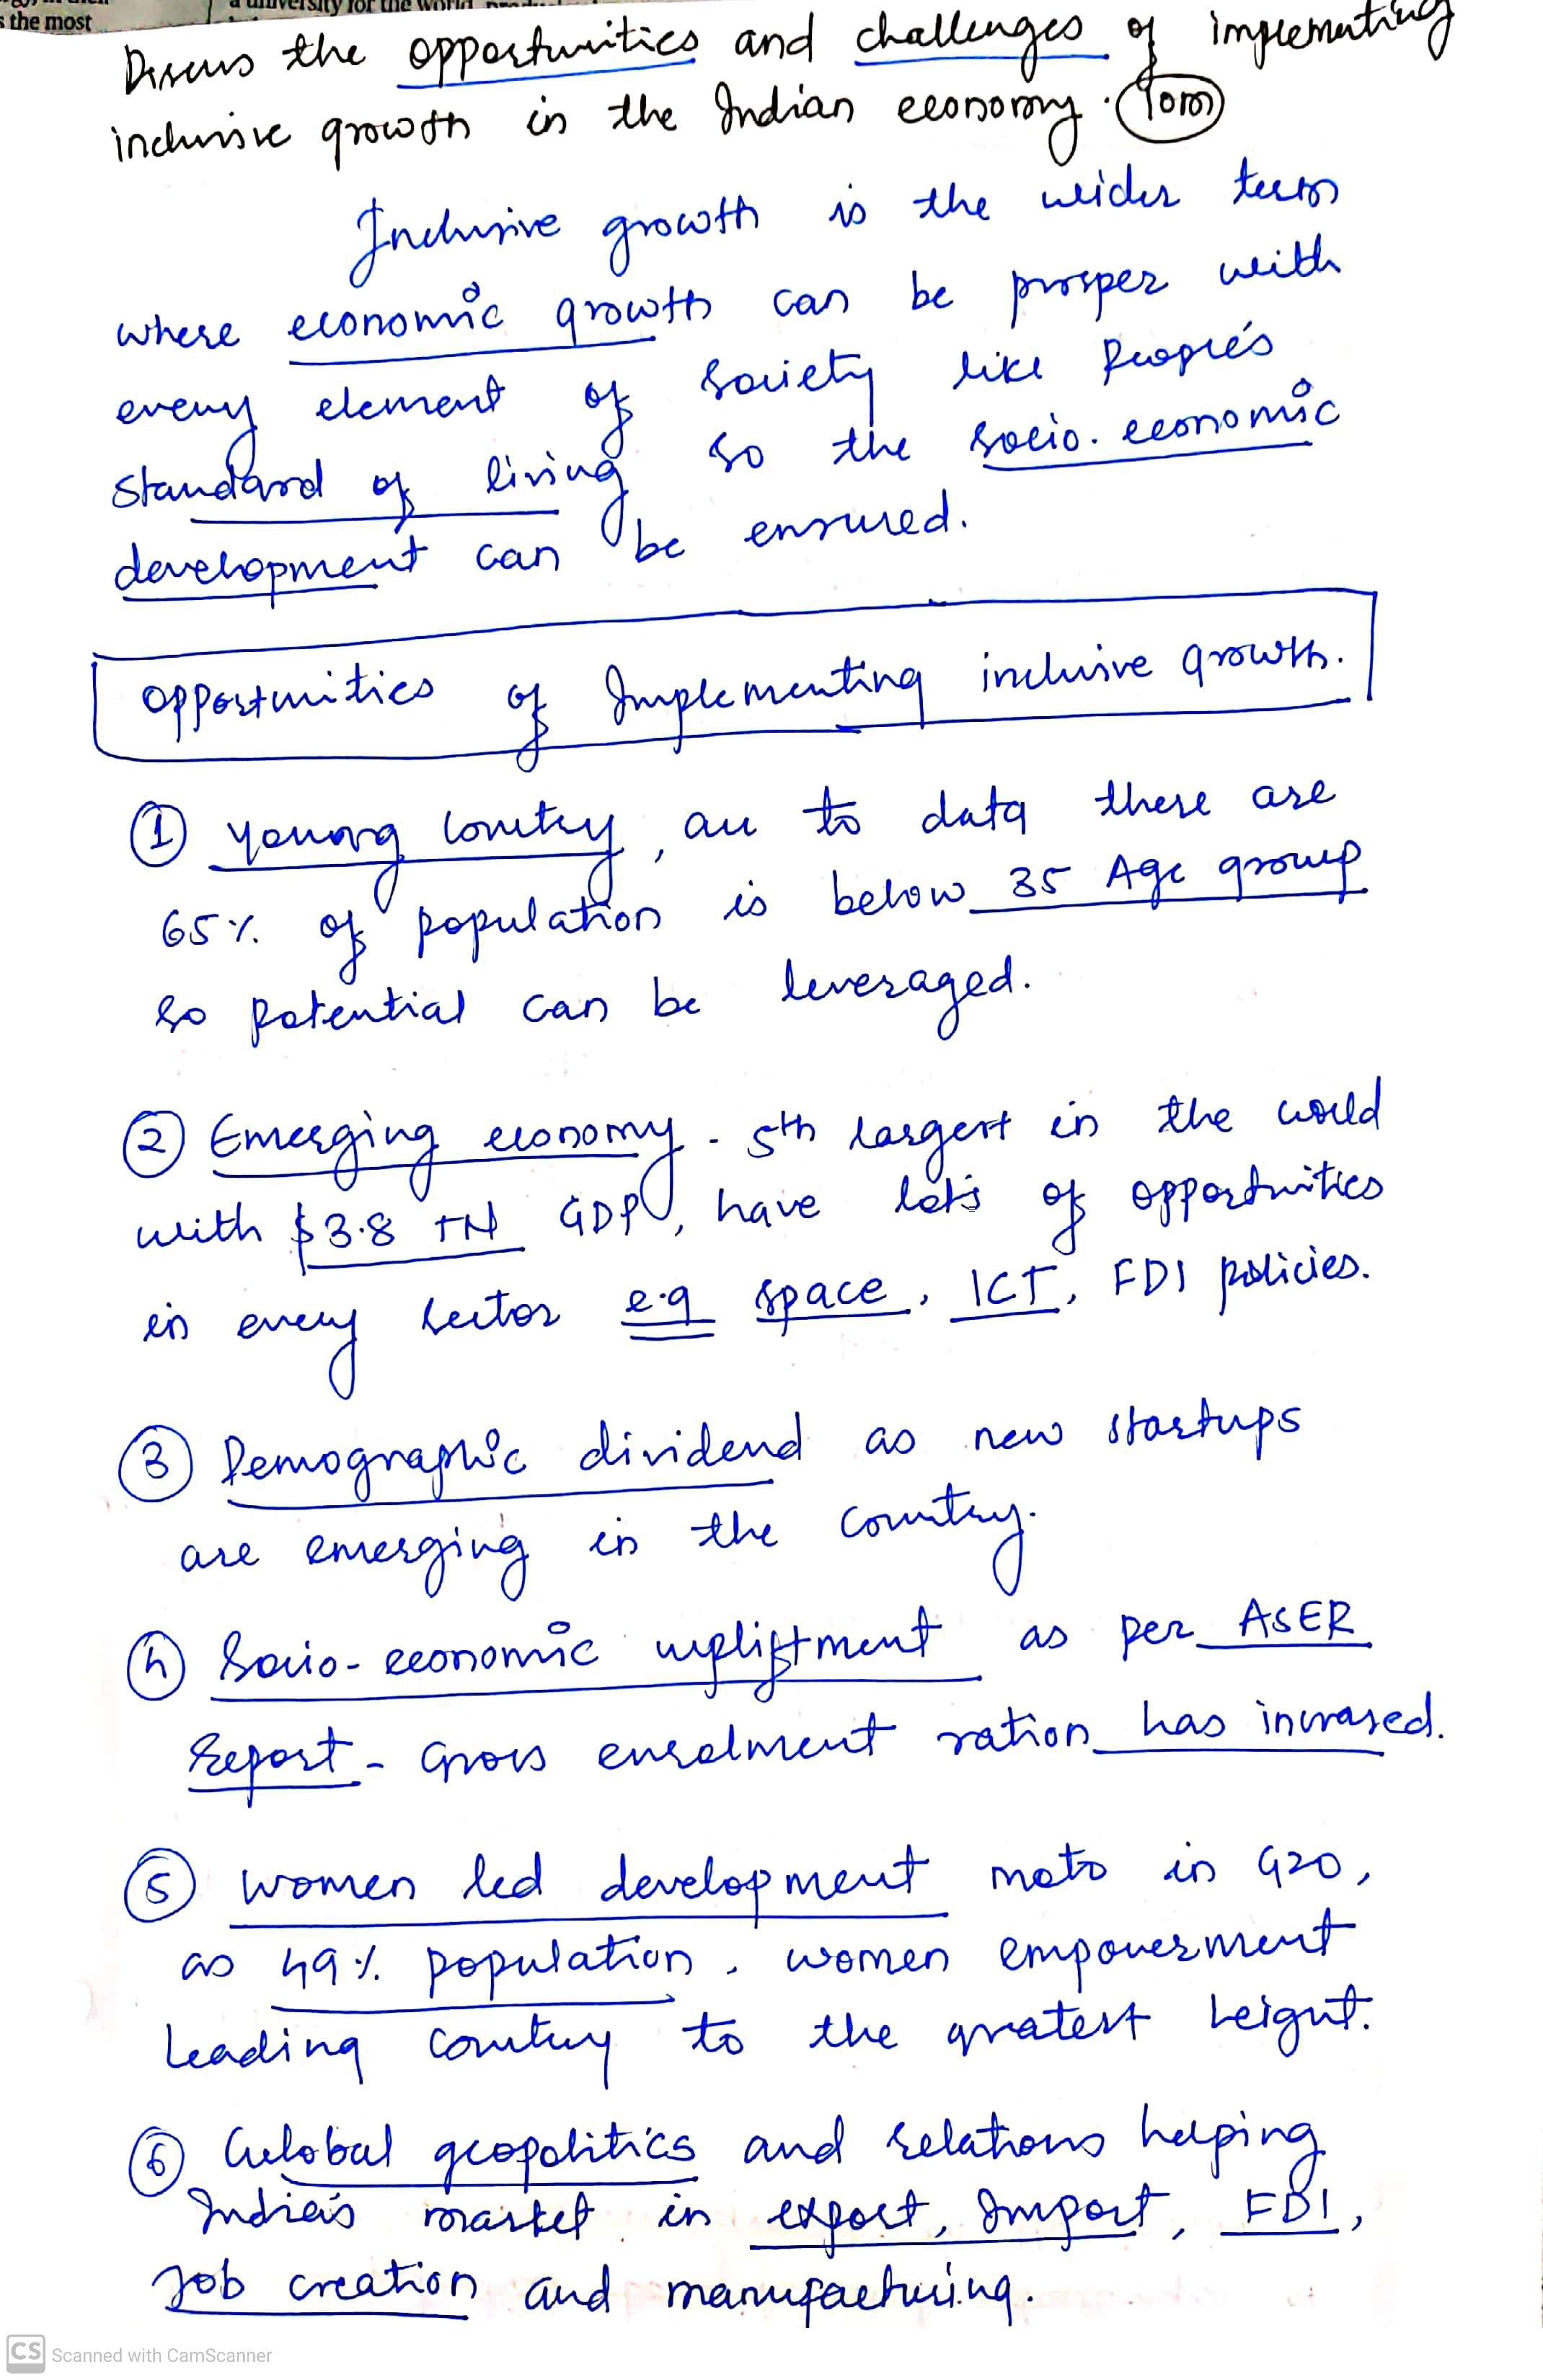 a university for the world
s the most
Discuss the opportunities and challenges of implementing
inclusive growth in the Indian economy. (10m)
Inclusive growth is the wider term
where economic growth can be prosper with
every element of society like People's
standard of living so the socio-economic
development can be ensured.
Opportunities of Implementing inclusive growth.
① young country, acc to data there are
65% of population is below 35 Age group
so potential can be leveraged.
② Emerging economy - 5th largest in the world
with $3.8 TN GDP, have lots of opportunities
in every sector e.g space, ICT, FDI policies.
③ Demographic dividend as new startups
are emerging in the country.
④ Socio-economic upliftment as per ASER
Report - Gross enrolment ration has incrased.
⑤ women led development moto in G20,
as 49% population, women empowerment
leading country to the greatest height.
⑥ Gulobal geopolitics and relations helping
India's market in export, Import, FDI,
Job creation and manufacturing.
CS Scanned with CamScanner